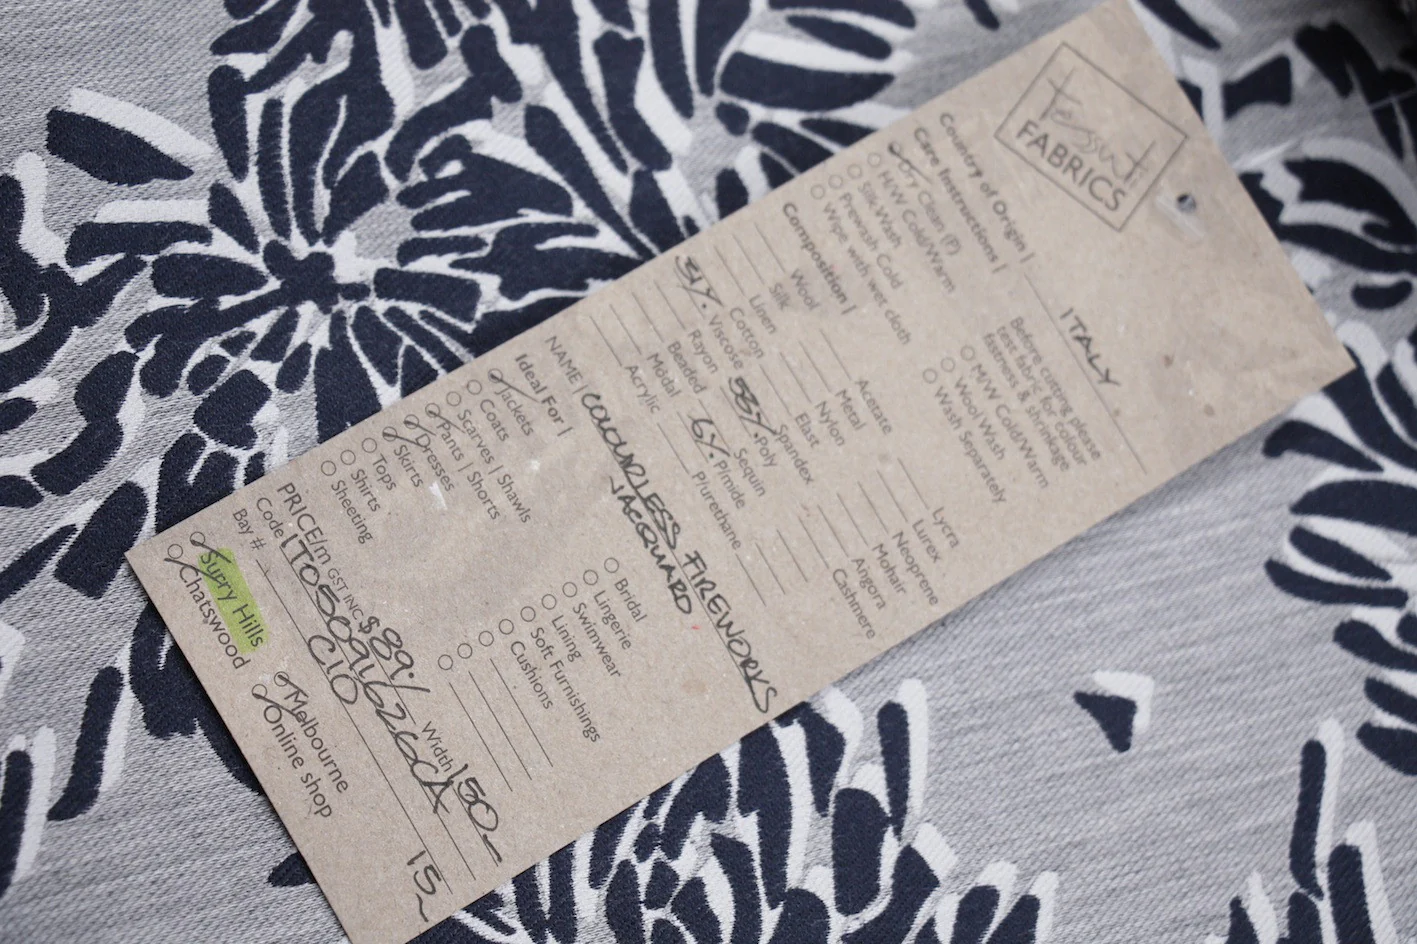 Tessuti
FABRICS
Country of Origin | ITALY
Care Instructions |
Dry Clean (P)
H/W Cold/Warm
Silk Wash
Prewash Cold
Wipe with wet cloth
Before cutting please
test fabric for colour
fastness & shrinkage
M/W Cold/Warm
Wool Wash
Wash Separately
Composition |
Wool
Silk
Linen
Cotton
Viscose
Rayon
Beaded
Modal
Acrylic
Acetate
Metal
Nylon
Elast
Spandex
Poly
Sequin
6% P/mide
P/urethane
Lycra
Lurex
Neoprene
Mohair
Angora
Cashmere
NAME | COLOURLESS FIREWORKS
JACQUARD
Ideal For |
Jackets
Coats
Scarves | Shawls
Pants | Shorts
Dresses
Skirts
Tops
Shirts
Sheeting
Bridal
Lingerie
Swimwear
Lining
Soft Furnishings
Cushions
PRICE/m GST INC $89 Width 150
Code
Bay # C10 15
Surry Hills
Chatswood
Melbourne
Online shop